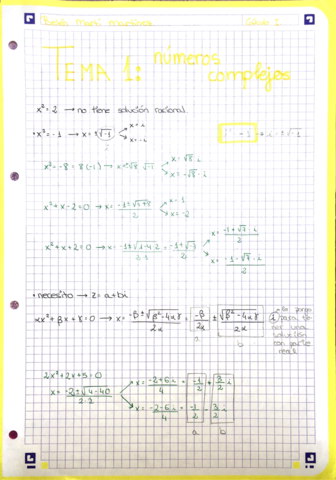 Cálculo I
TEMA 1: números
complejos
x² = 2 → no tiene solución racional.
• x² = -1 → x = ±√-1 x = i
x = -i
i² = -1 → i = ±√-1
x² = -8 = 8(-1) → x = ±√8 √-1 x = √8 · i
x = -√8 · i
x² + x - 2 = 0 → x = (-1 ± √(1+8))/2 x = 1
x = -2
x² + x + 2 = 0 → x = (-1 ± √(1-4·2))/(2·1) = (-1 ± √-7)/2 x = (-1 + √7 · i)/2
x = (-1 - √7 · i)/2
• necesito → z = a + bi
αx² + βx + γ = 0 → x = (-β ± √(β² - 4αγ))/2α = -β/2α ± √(β² - 4αγ)/2α
a b
→ lo pongo
para te
ner una
solución
con parte
real
2x² + 2x + 5 = 0
x = (-2 ± √(4-40))/(2·2) x = (-2 + 6i)/4 = -1/2 + 3/2 i
x = (-2 - 6i)/4 = -1/2 - 3/2 i
a b